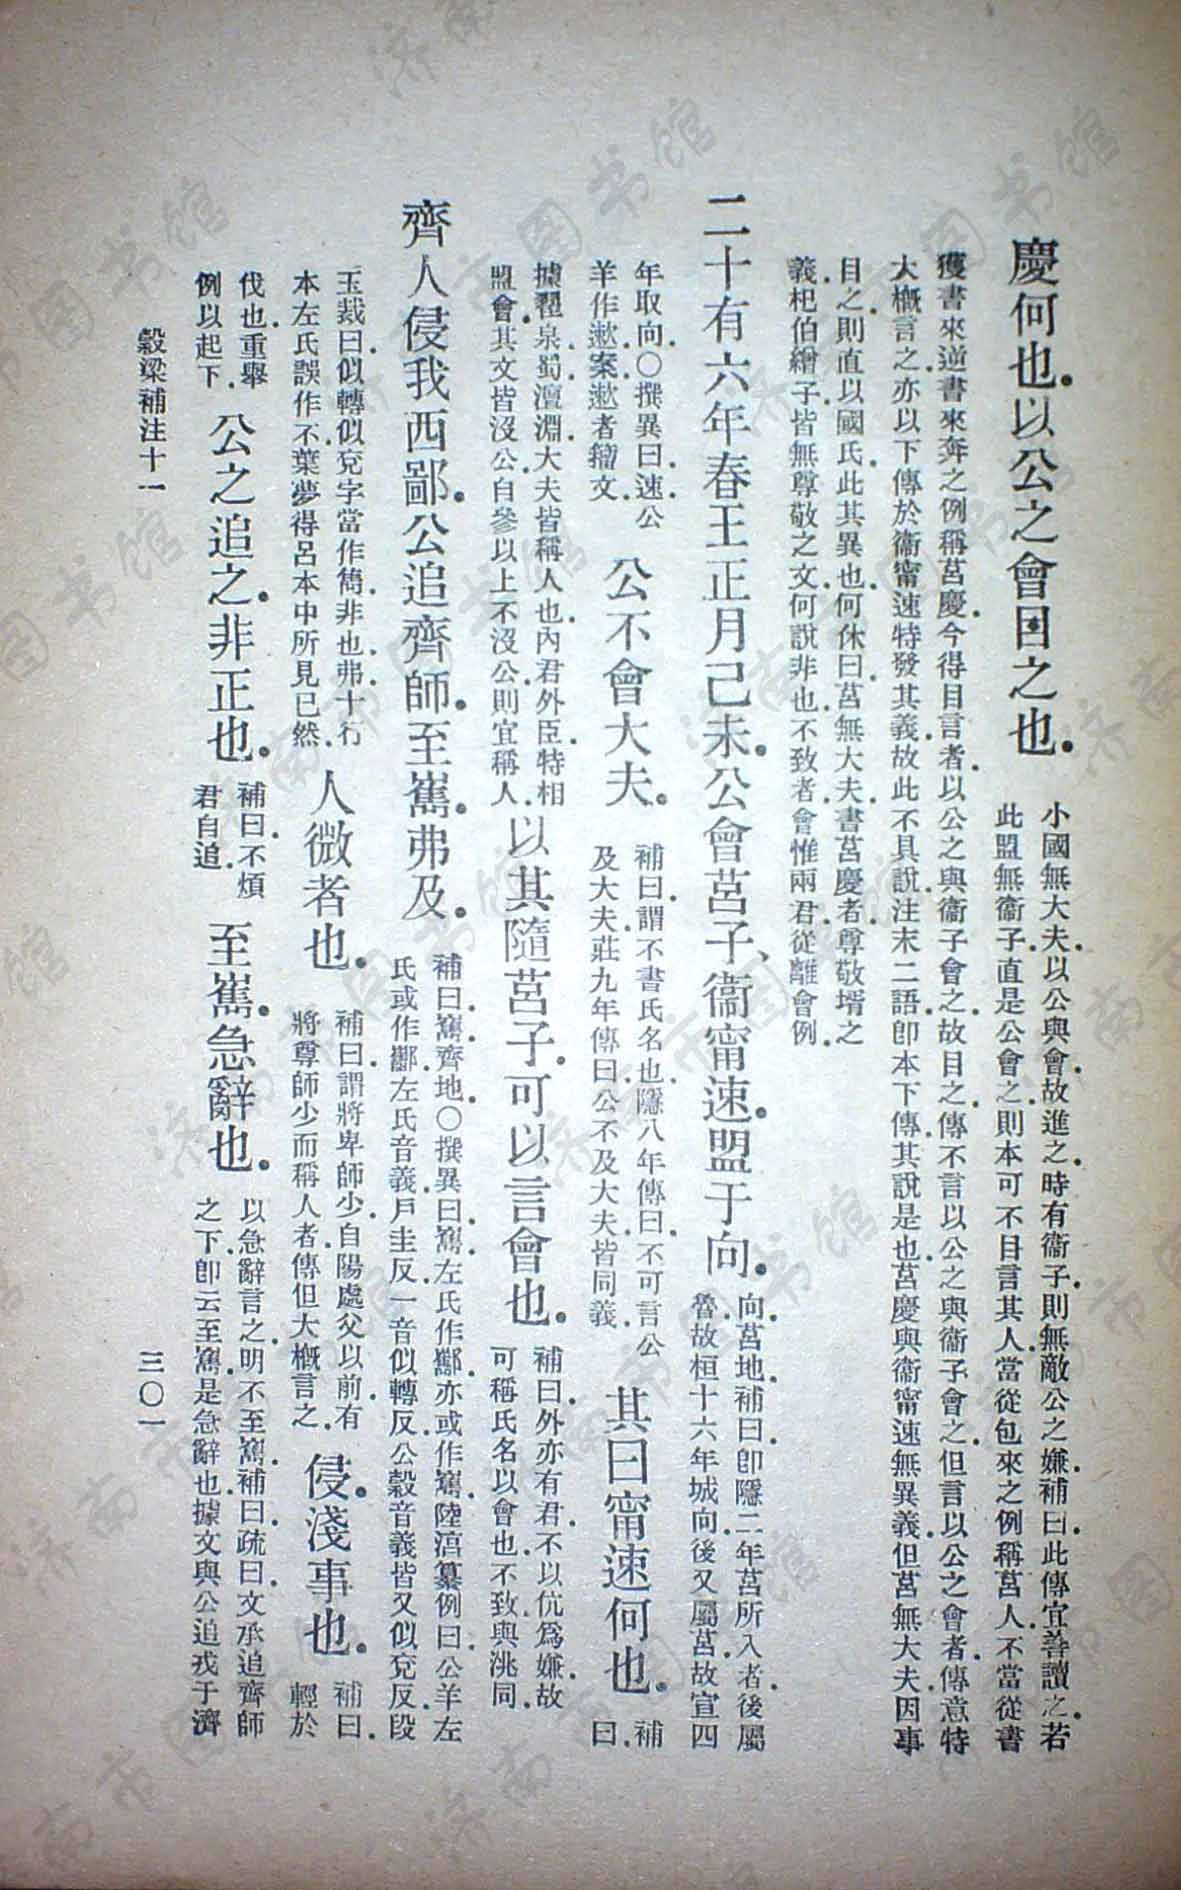 慶何也。以公之會目之也。
小國無大夫。以公與會。故進之。時有衞子。則無敵公之嫌。補曰。此傳宜善讀之。若
此盟無衞子。直是公會之。則本可不目言其人。當從包來之例稱莒人。不當從書
獲書來逆書來奔之例稱莒慶。今得目言者。以公之與衞子會之。故目之。傳不言以公之與衞子會之。但言以公之會者。傳意特
大概言之。亦以下傳於衞甯速特發其義。故此不具說。注末二語即本下傳。其說是也。莒慶與衞甯速無異義。但莒無大夫。因事
目之。則直以國氏。此其異也。何休曰。莒無大夫。書莒慶者。尊敬壻之
義。杞伯繒子。皆無尊敬之文。何說非也。不致者。會惟兩君。從離會例。
二十有六年春。王正月。己未。公會莒子、衞甯速盟于向。
向。莒地。補曰。即隱二年莒所入者。後屬
魯。故桓十六年城向。後又屬莒。故宣四
年取向。〇撰異曰。速。公
羊作遬。案。遬者籀文。
公不會大夫。
補曰。謂不書氏名也。隱八年傳曰。不可言公
及大夫。莊九年傳曰。公不及大夫。皆同義。
其曰甯速何也。
補
曰。
據翟泉。蜀。澶淵。大夫皆稱人也。內君外臣特相
盟會。其文皆沒公。自參以上不沒公。則宜稱人。
以其隨莒子。可以言會也。
補曰。外亦有君。不以伉爲嫌。故
可稱氏名以會也。不致。與洮同。
齊人侵我西鄙。公追齊師。至巂。弗及。
補曰。巂。齊地。〇撰異曰。巂。左氏作酅。亦或作巂。陸淳纂例曰。公羊左
氏或作酅。左氏音義。戶圭反。一音似轉反。公穀音義皆又似兗反。段
玉裁曰。似轉似兗字當作雋。非也。弗。十行
本左氏誤作不。葉夢得呂本中所見已然。
人。微者也。
補曰。謂將卑師少。自陽處父以前。有
將尊師少而稱人者。傳但大概言之。
侵。淺事也。
補曰。
輕於
伐也。重舉
例以起下。
公之追之。非正也。
補曰。不煩
君自追。
至巂。急辭也。
以急辭言之。明不至巂。補曰。疏曰。文承追齊師
之下。即云至巂。是急辭也。據文與公追戎于濟
穀梁補注十一
三〇一